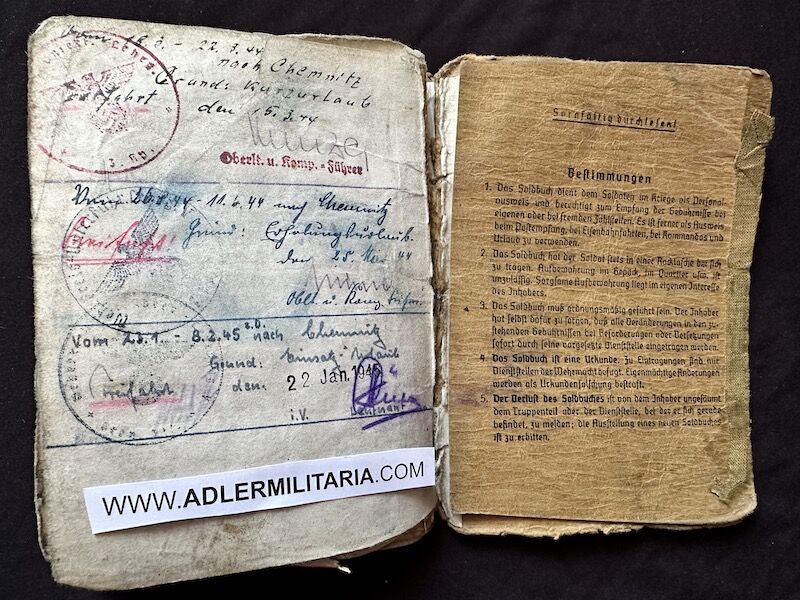 Vom 16.3. - 22.3.44
nach Chemnitz
Grund: Kurzurlaub
den 15.3.44
Oberlt. u. Komp.-Führer
3. Kp.
nach Chemnitz
Grund: Erholungsurlaub
den 25. Mai 44
Vom 23.1. - 8.2.45 nach Chemnitz
Grund: Einsatz-Urlaub
Freifahrt den: 22. Jan. 1945
i.V. Leutnant
WWW.ADLERMILITARIA.COM
Sorgfältig durchlesen!
Bestimmungen
1. Das Soldbuch dient dem Soldaten im Kriege als Personal-
ausweis und berechtigt zum Empfang der Gebührnisse bei
eigenen oder bei fremden Zahlstellen. Es ist ferner als Ausweis
beim Postempfang, bei Eisenbahnfahrten, bei Kommandos und
Urlaub zu verwenden.
2. Das Soldbuch hat der Soldat stets in einer Rocktasche bei sich
zu tragen. Aufbewahrung im Gepäck, im Quartier usw. ist
unzulässig. Sorgsame Aufbewahrung liegt im eigenen Interesse
des Inhabers.
3. Das Soldbuch muß ordnungsmäßig geführt sein. Der Inhaber
hat selbst dafür zu sorgen, daß alle Veränderungen in den zu-
stehenden Gebührnissen bei Beförderungen oder Versetzungen
sofort durch seine vorgesetzte Dienststelle eingetragen werden.
4. Das Soldbuch ist eine Urkunde. Zu Eintragungen sind nur
Dienststellen der Wehrmacht befugt. Eigenmächtige Änderungen
werden als Urkundenfälschung bestraft.
5. Der Verlust des Soldbuches ist von dem Inhaber ungesäumt
dem Truppenteil oder der Dienststelle, bei der er sich gerade
befindet, zu melden; die Ausstellung eines neuen Soldbuches
ist zu erbitten.